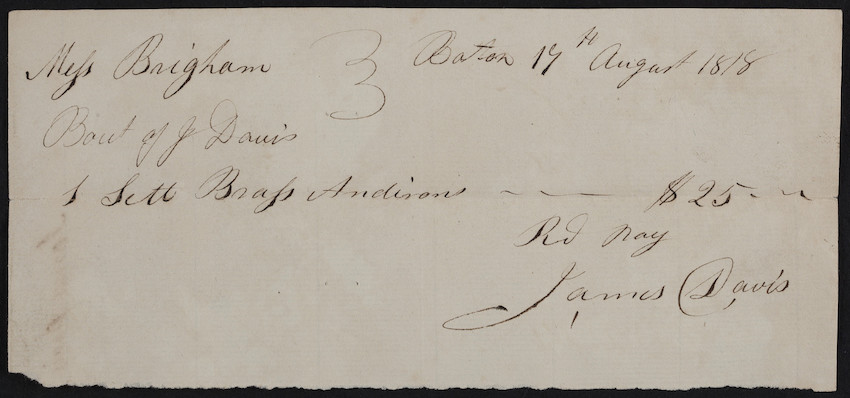 Mess Brigham 3 Boston 17th August 1818
Bout of J Davis
1 Sett Brass Andirons $25
Rd Pay
James Davis